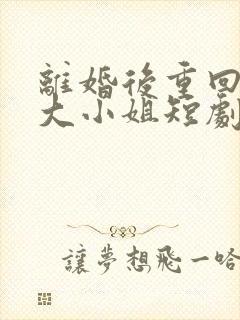 離婚後重回
大小姐短劇
讓夢想飛一哈